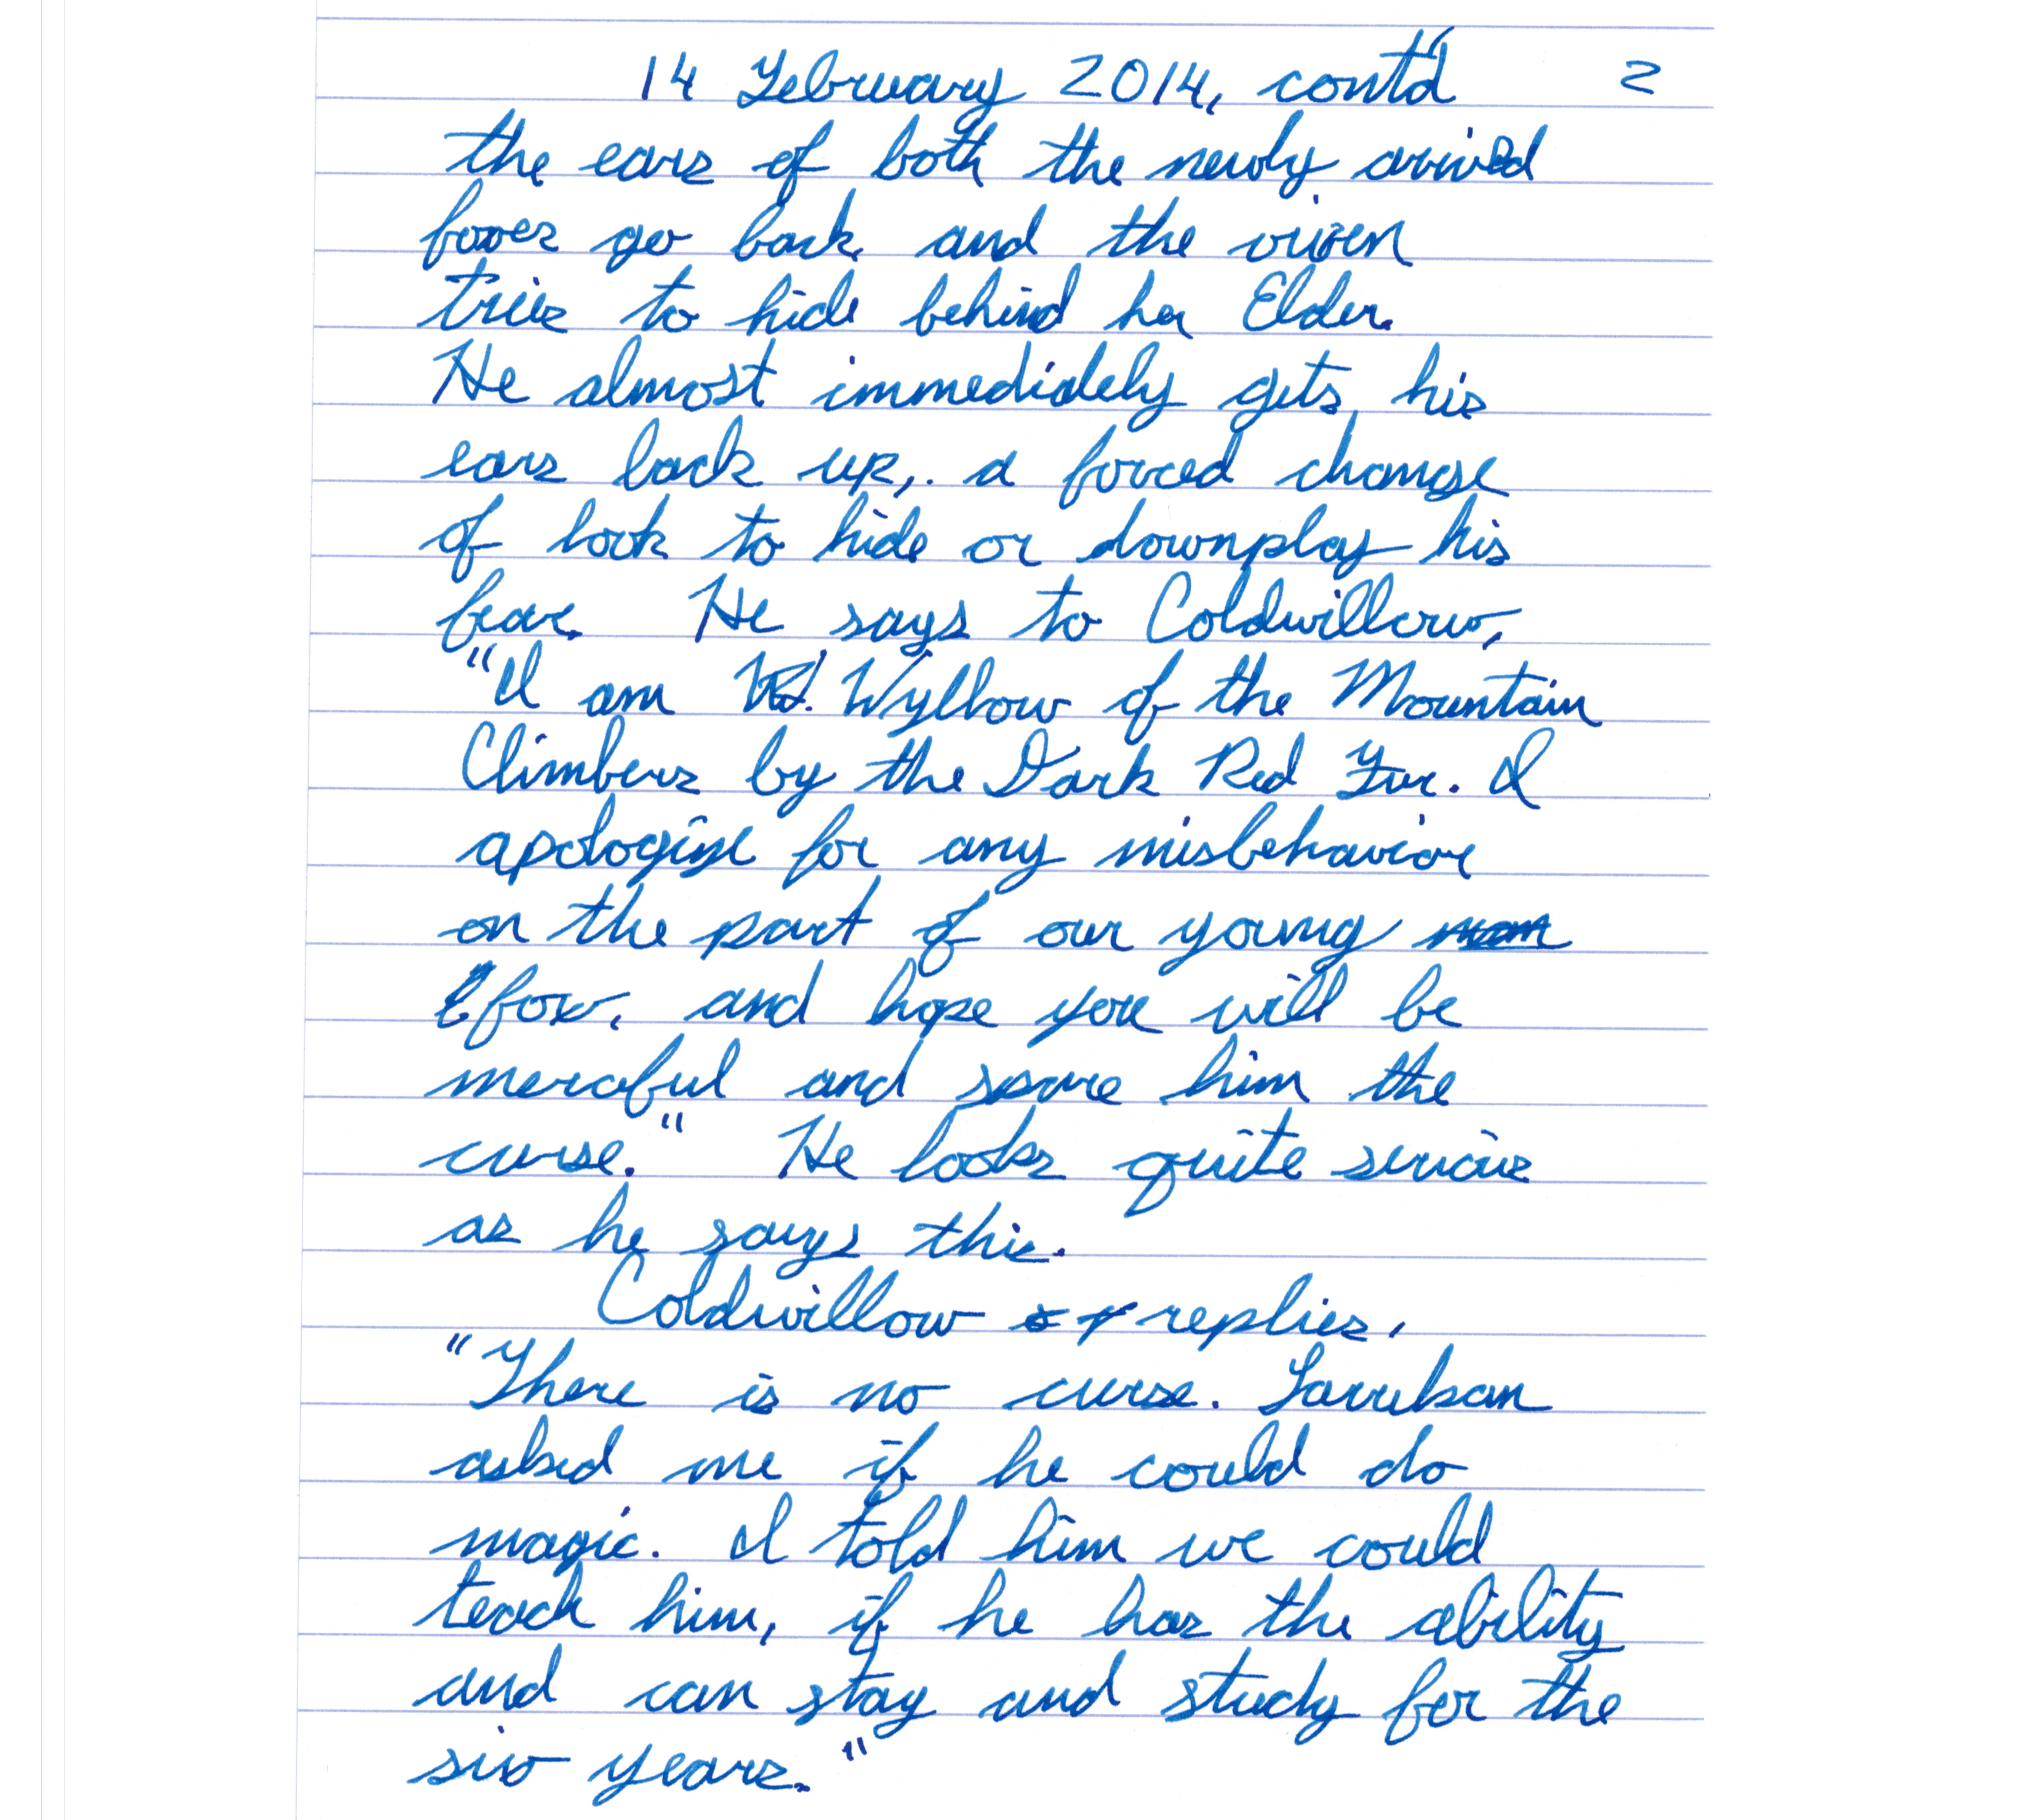 14 February 2014, cont'd 2
the ears of both the newly arrived
foxes go back and the vixen
tries to hide behind her Elder.
He almost immediately gets his
ears back up, a forced change
of look to hide or downplay his
fear. He says to Coldwillow,
"I am Wyllow of the Mountain
Climbers by the Dark Red Fur. I
apologize for any misbehavior
on the part of our young
fox, and hope you will be
merciful and spare him the
curse." He looks quite serious
as he says this.
Coldwillow replies,
"There is no curse.
asked me if he could do
magic. I told him we could
teach him, if he has the ability
and can stay and study for the
six years."